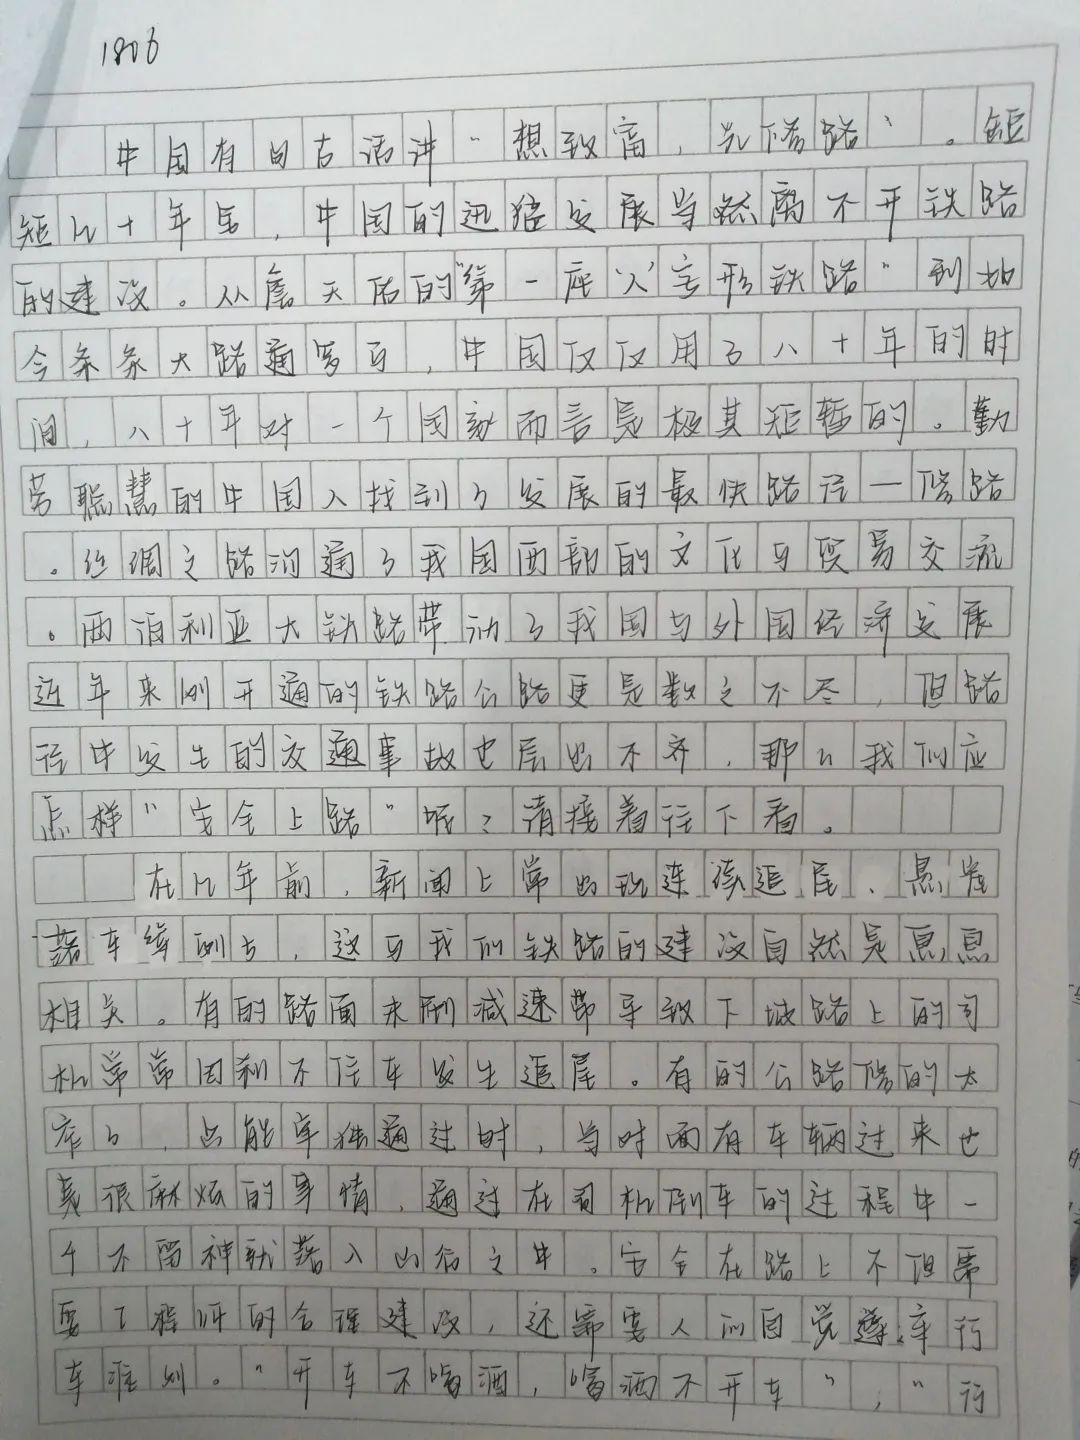 1806
中国有自古话讲“想致富,先修路”。短
短几十年里,中国的迅猛发展当然离不开铁路
的建设。从詹天佑的“第一座‘人’字形铁路”到如
今条条大路通罗马,中国仅仅用了八十年的时
间,八十年对一个国家而言是极其短暂的。勤
劳聪慧的中国人找到了发展的最快路径一修路
。丝绸之路沟通了我国西部的文化与贸易交流
。西泊利亚大铁路带动了我国与外国经济发展
近年来刚开通的铁路公路更是数之不尽,但路
径中发生的交通事故也层出不齐,那么我们应
怎样“安全上路”呢?请接着往下看。
在几年前,新闻上常出现连续追尾、悬崖
落车等例子,这与我们铁路的建设自然是息息
相关。有的路面未刷减速带导致下坡路上的司
机常常因刹不住车发生追尾。有的公路修的太
窄了,只能单独通过时,当对面有车辆过来也
是很麻烦的事情,通过在司机倒车的过程中一
个不留神就落入山谷之中。安全在路上不但需
要工程师的合理建设,还需要人们自觉遵守行
车准则。“开车不喝酒,喝酒不开车”,“行